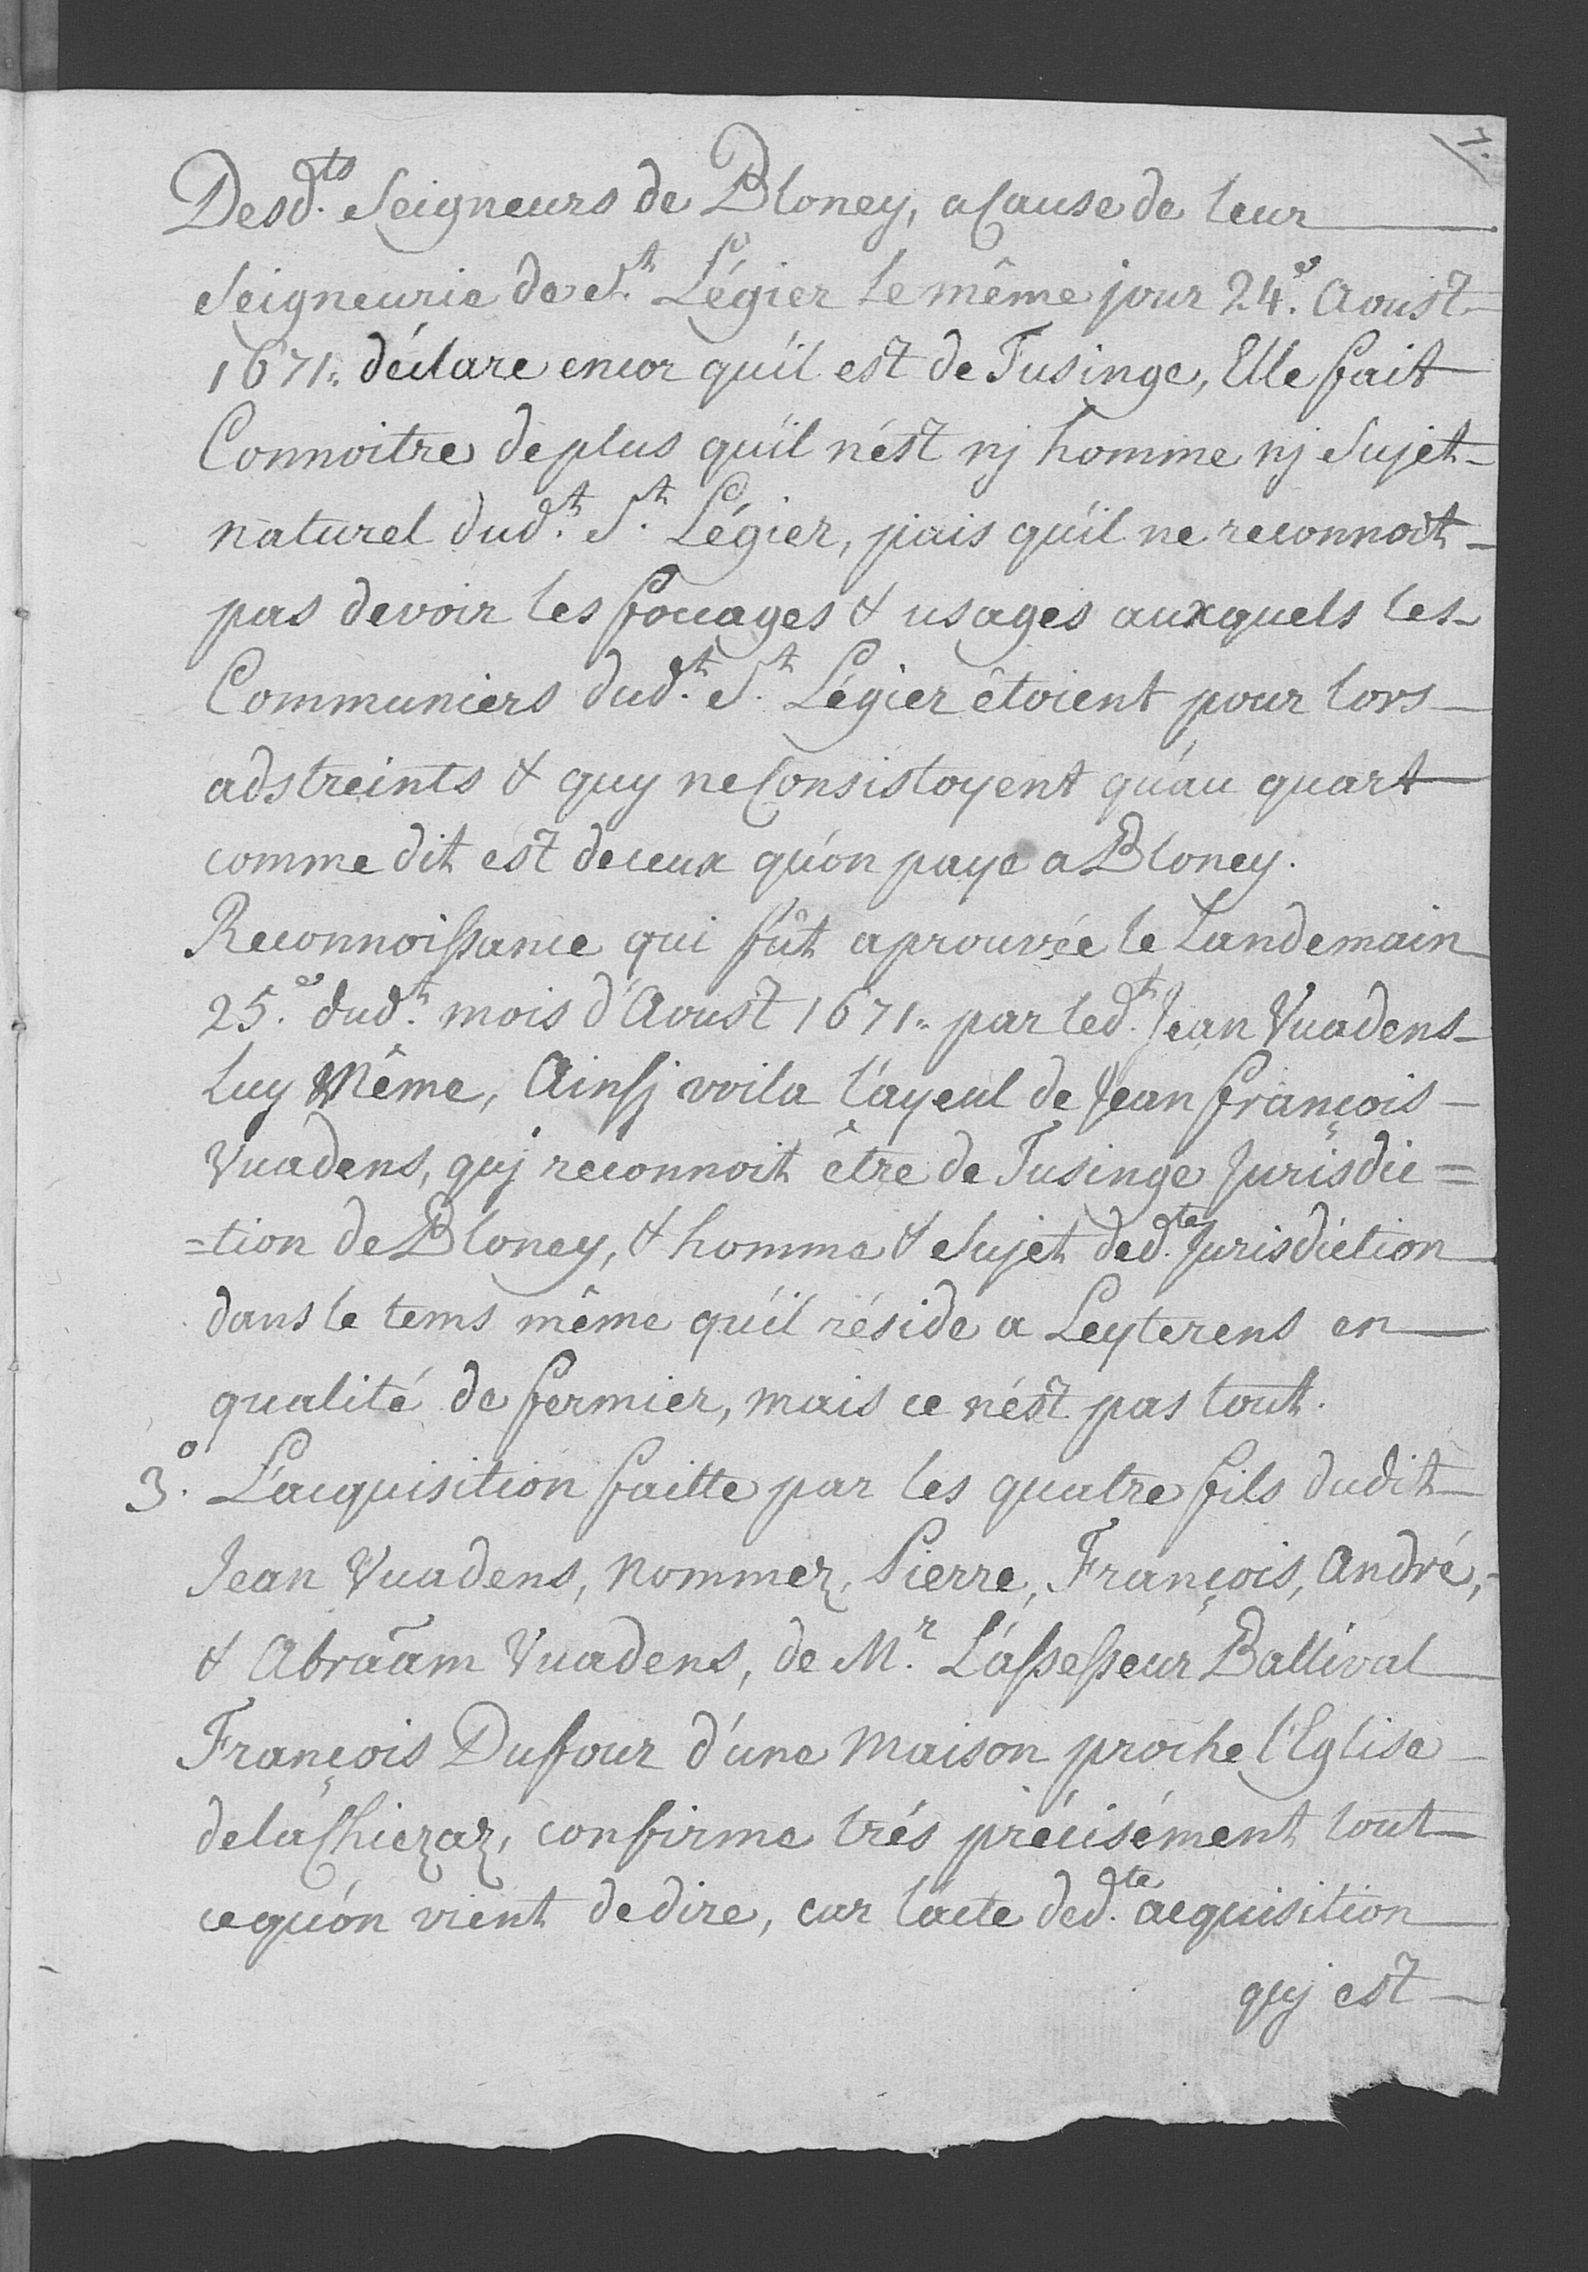 7.
Desd.ts Seigneurs de Bloney, a Cause de leur
Seigneurie de St. Légier le même jour 24.e Aoust
1671. déclare encor qu'il est de Tusinge, Elle fait
Connoitre de plus qu'il n'ést nj homme nj Sujet
naturel dud.t St. Légier, puis qu'il ne reconnoit
pas devoir les fouages & usages auxquels les
Communiers dud.t St. Légier étoient pour lors
adstreints & quy ne Consistoyent qu'au quart
comme dit est de ceux qu'on paye a Bloney.
Reconnoissance qui fût aprouvée le Landemain
25.e dud.t mois d'Aoust 1671. par led.t Jean Vuadens
Luy Même, Ainsj voila l'ayeul de Jean François
Vuadens, quj reconnoit être de Tusinge Jurisdic=
=tion de Bloney, & homme & Sujet ded.te Jurisdiction
dans le tems même qu'il réside a Leyterens en
qualité de fermier, mais ce n'ést pas tout.
3.o L'acquisition faitte par les quatre fils dudit
Jean Vuadens, Nommez, Pierre, François, André,
& Abraâm Vuadens, de Mr. L'assesseur Ballival
François Duffour d'une Maison proche l'Eglise
de la Chiezaz, confirme trés précisément tout
ce qu'on vient de dire, car l'acte ded.te acquisition
quj est